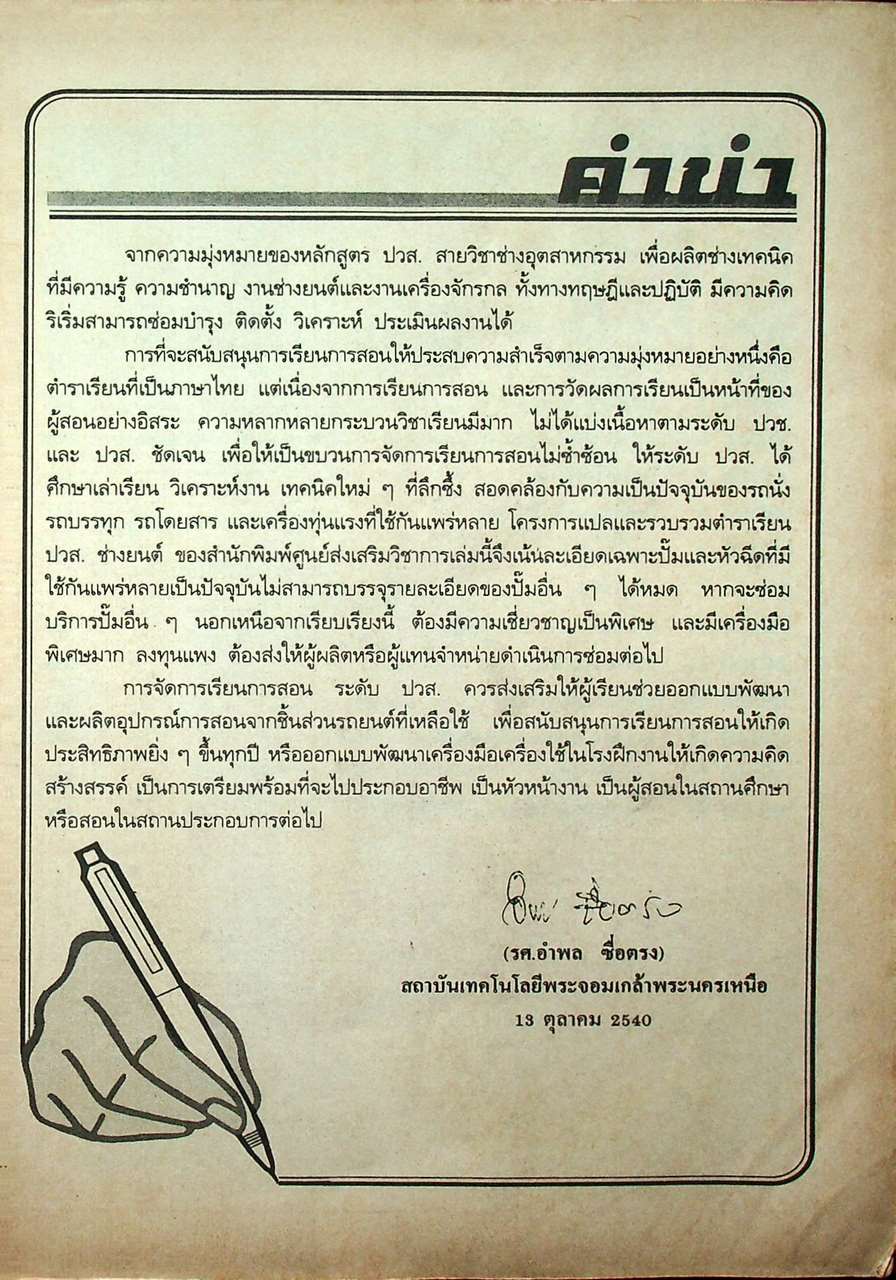 คำนำ
จากความมุ่งหมายของหลักสูตร ปวส. สายวิชาช่างอุตสาหกรรม เพื่อผลิตช่างเทคนิค
ที่มีความรู้ ความชำนาญ งานช่างยนต์และงานเครื่องจักรกล ทั้งทางทฤษฎีและปฏิบัติ มีความคิด
ริเริ่มสามารถซ่อมบำรุง ติดตั้ง วิเคราะห์ ประเมินผลงานได้
การที่จะสนับสนุนการเรียนการสอนให้ประสบความสำเร็จตามความมุ่งหมายอย่างหนึ่งคือ
ตำราเรียนที่เป็นภาษาไทย แต่เนื่องจากการเรียนการสอน และการวัดผลการเรียนเป็นหน้าที่ของ
ผู้สอนอย่างอิสระ ความหลากหลายกระบวนวิชาเรียนมีมาก ไม่ได้แบ่งเนื้อหาตามระดับ ปวช.
และ ปวส. ชัดเจน เพื่อให้เป็นขบวนการจัดการเรียนการสอนไม่ซ้ำซ้อน ให้ระดับ ปวส. ได้
ศึกษาเล่าเรียน วิเคราะห์งาน เทคนิคใหม่ ๆ ที่ลึกซึ้ง สอดคล้องกับความเป็นปัจจุบันของรถนั่ง
รถบรรทุก รถโดยสาร และเครื่องทุ่นแรงที่ใช้กันแพร่หลาย โครงการแปลและรวบรวมตำราเรียน
ปวส. ช่างยนต์ ของสำนักพิมพ์ศูนย์ส่งเสริมวิชาการเล่มนี้จึงเน้นละเอียดเฉพาะปั๊มและหัวฉีดที่มี
ใช้กันแพร่หลายเป็นปัจจุบันไม่สามารถบรรจุรายละเอียดของปั๊มอื่น ๆ ได้หมด หากจะซ่อม
บริการปั๊มอื่น ๆ นอกเหนือจากเรียบเรียงนี้ ต้องมีความเชี่ยวชาญเป็นพิเศษ และมีเครื่องมือ
พิเศษมาก ลงทุนแพง ต้องส่งให้ผู้ผลิตหรือผู้แทนจำหน่ายดำเนินการซ่อมต่อไป
การจัดการเรียนการสอน ระดับ ปวส. ควรส่งเสริมให้ผู้เรียนช่วยออกแบบพัฒนา
และผลิตอุปกรณ์การสอนจากชิ้นส่วนรถยนต์ที่เหลือใช้ เพื่อสนับสนุนการเรียนการสอนให้เกิด
ประสิทธิภาพยิ่ง ๆ ขึ้นทุกปี หรือออกแบบพัฒนาเครื่องมือเครื่องใช้ในโรงฝึกงานให้เกิดความคิด
สร้างสรรค์ เป็นการเตรียมพร้อมที่จะไปประกอบอาชีพ เป็นหัวหน้างาน เป็นผู้สอนในสถานศึกษา
หรือสอนในสถานประกอบการต่อไป
(รศ.อำพล ซื่อตรง)
สถาบันเทคโนโลยีพระจอมเกล้าพระนครเหนือ
13 ตุลาคม 2540